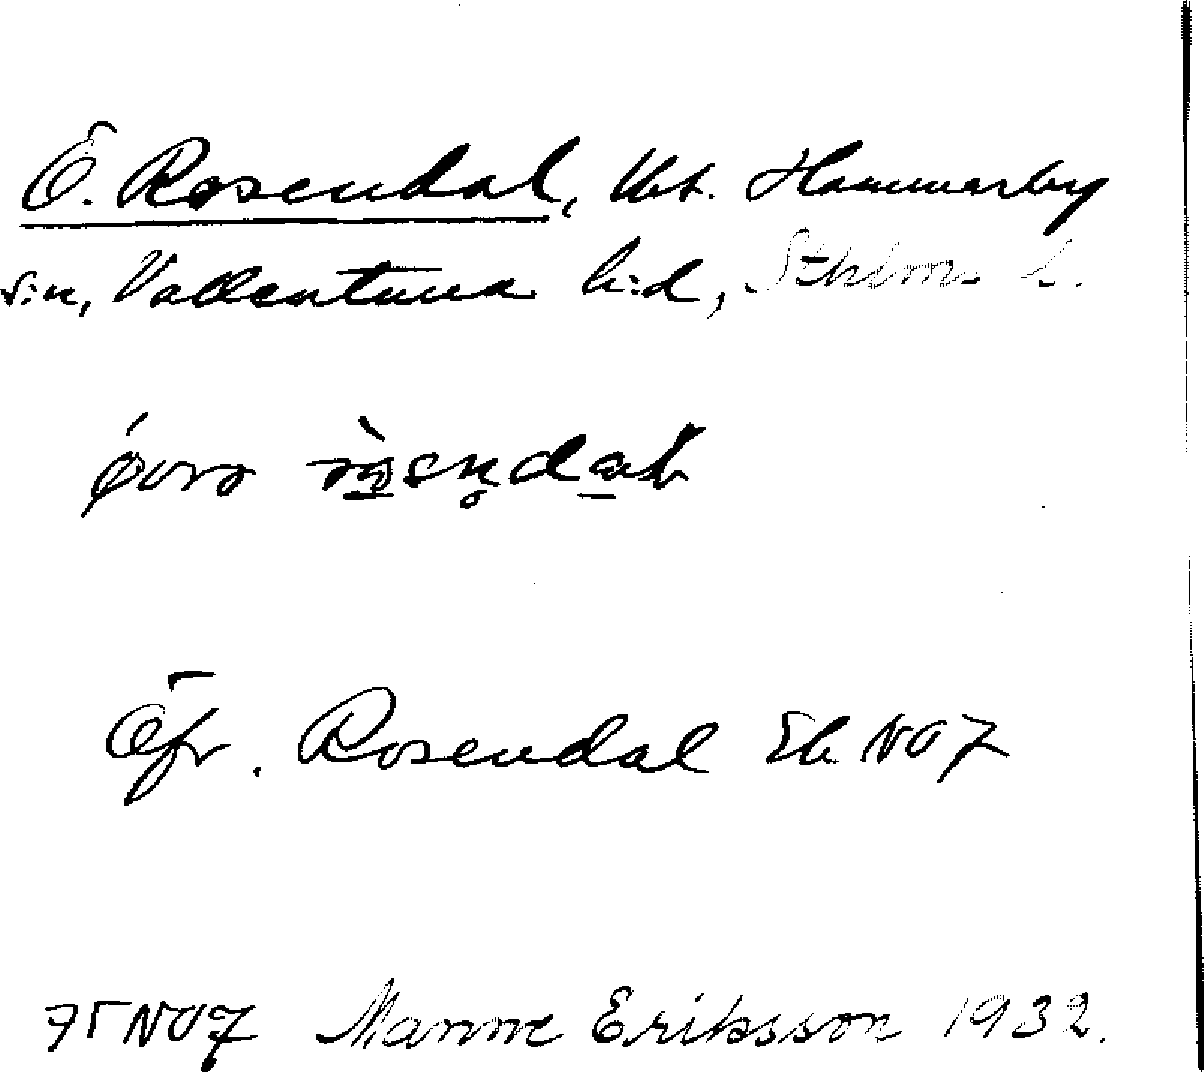 Ö. Rosendal, Vbt. Hammarby
s:n, Vallentuna h:d, Sthlms l.
Öfr. Rosendal Eb NO7
75 NO7 Manne Eriksson 1932.